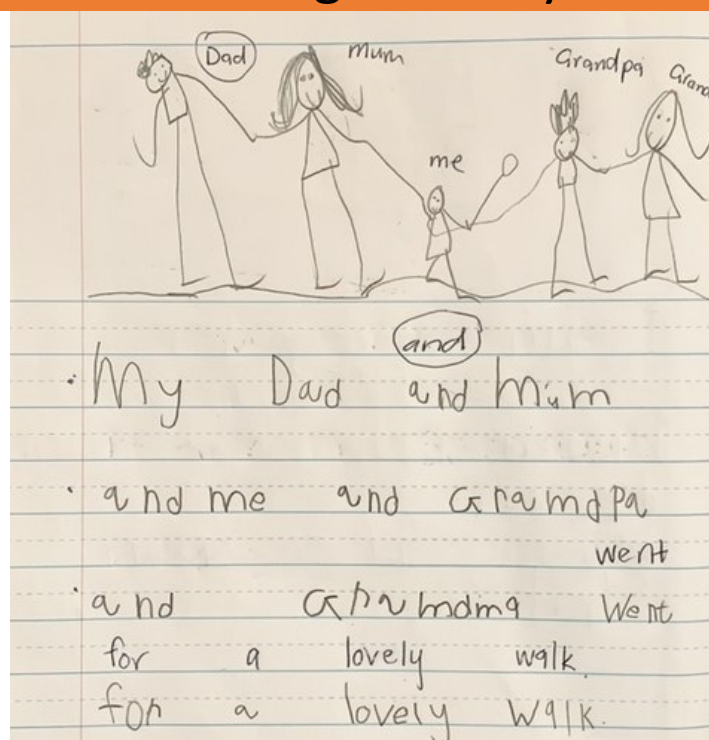 Dad mum Grandpa
me
and
My Dad and Mum
and me and Gramdpa
went
and Gramdma Went
for a lovely walk.
for a lovely Walk.